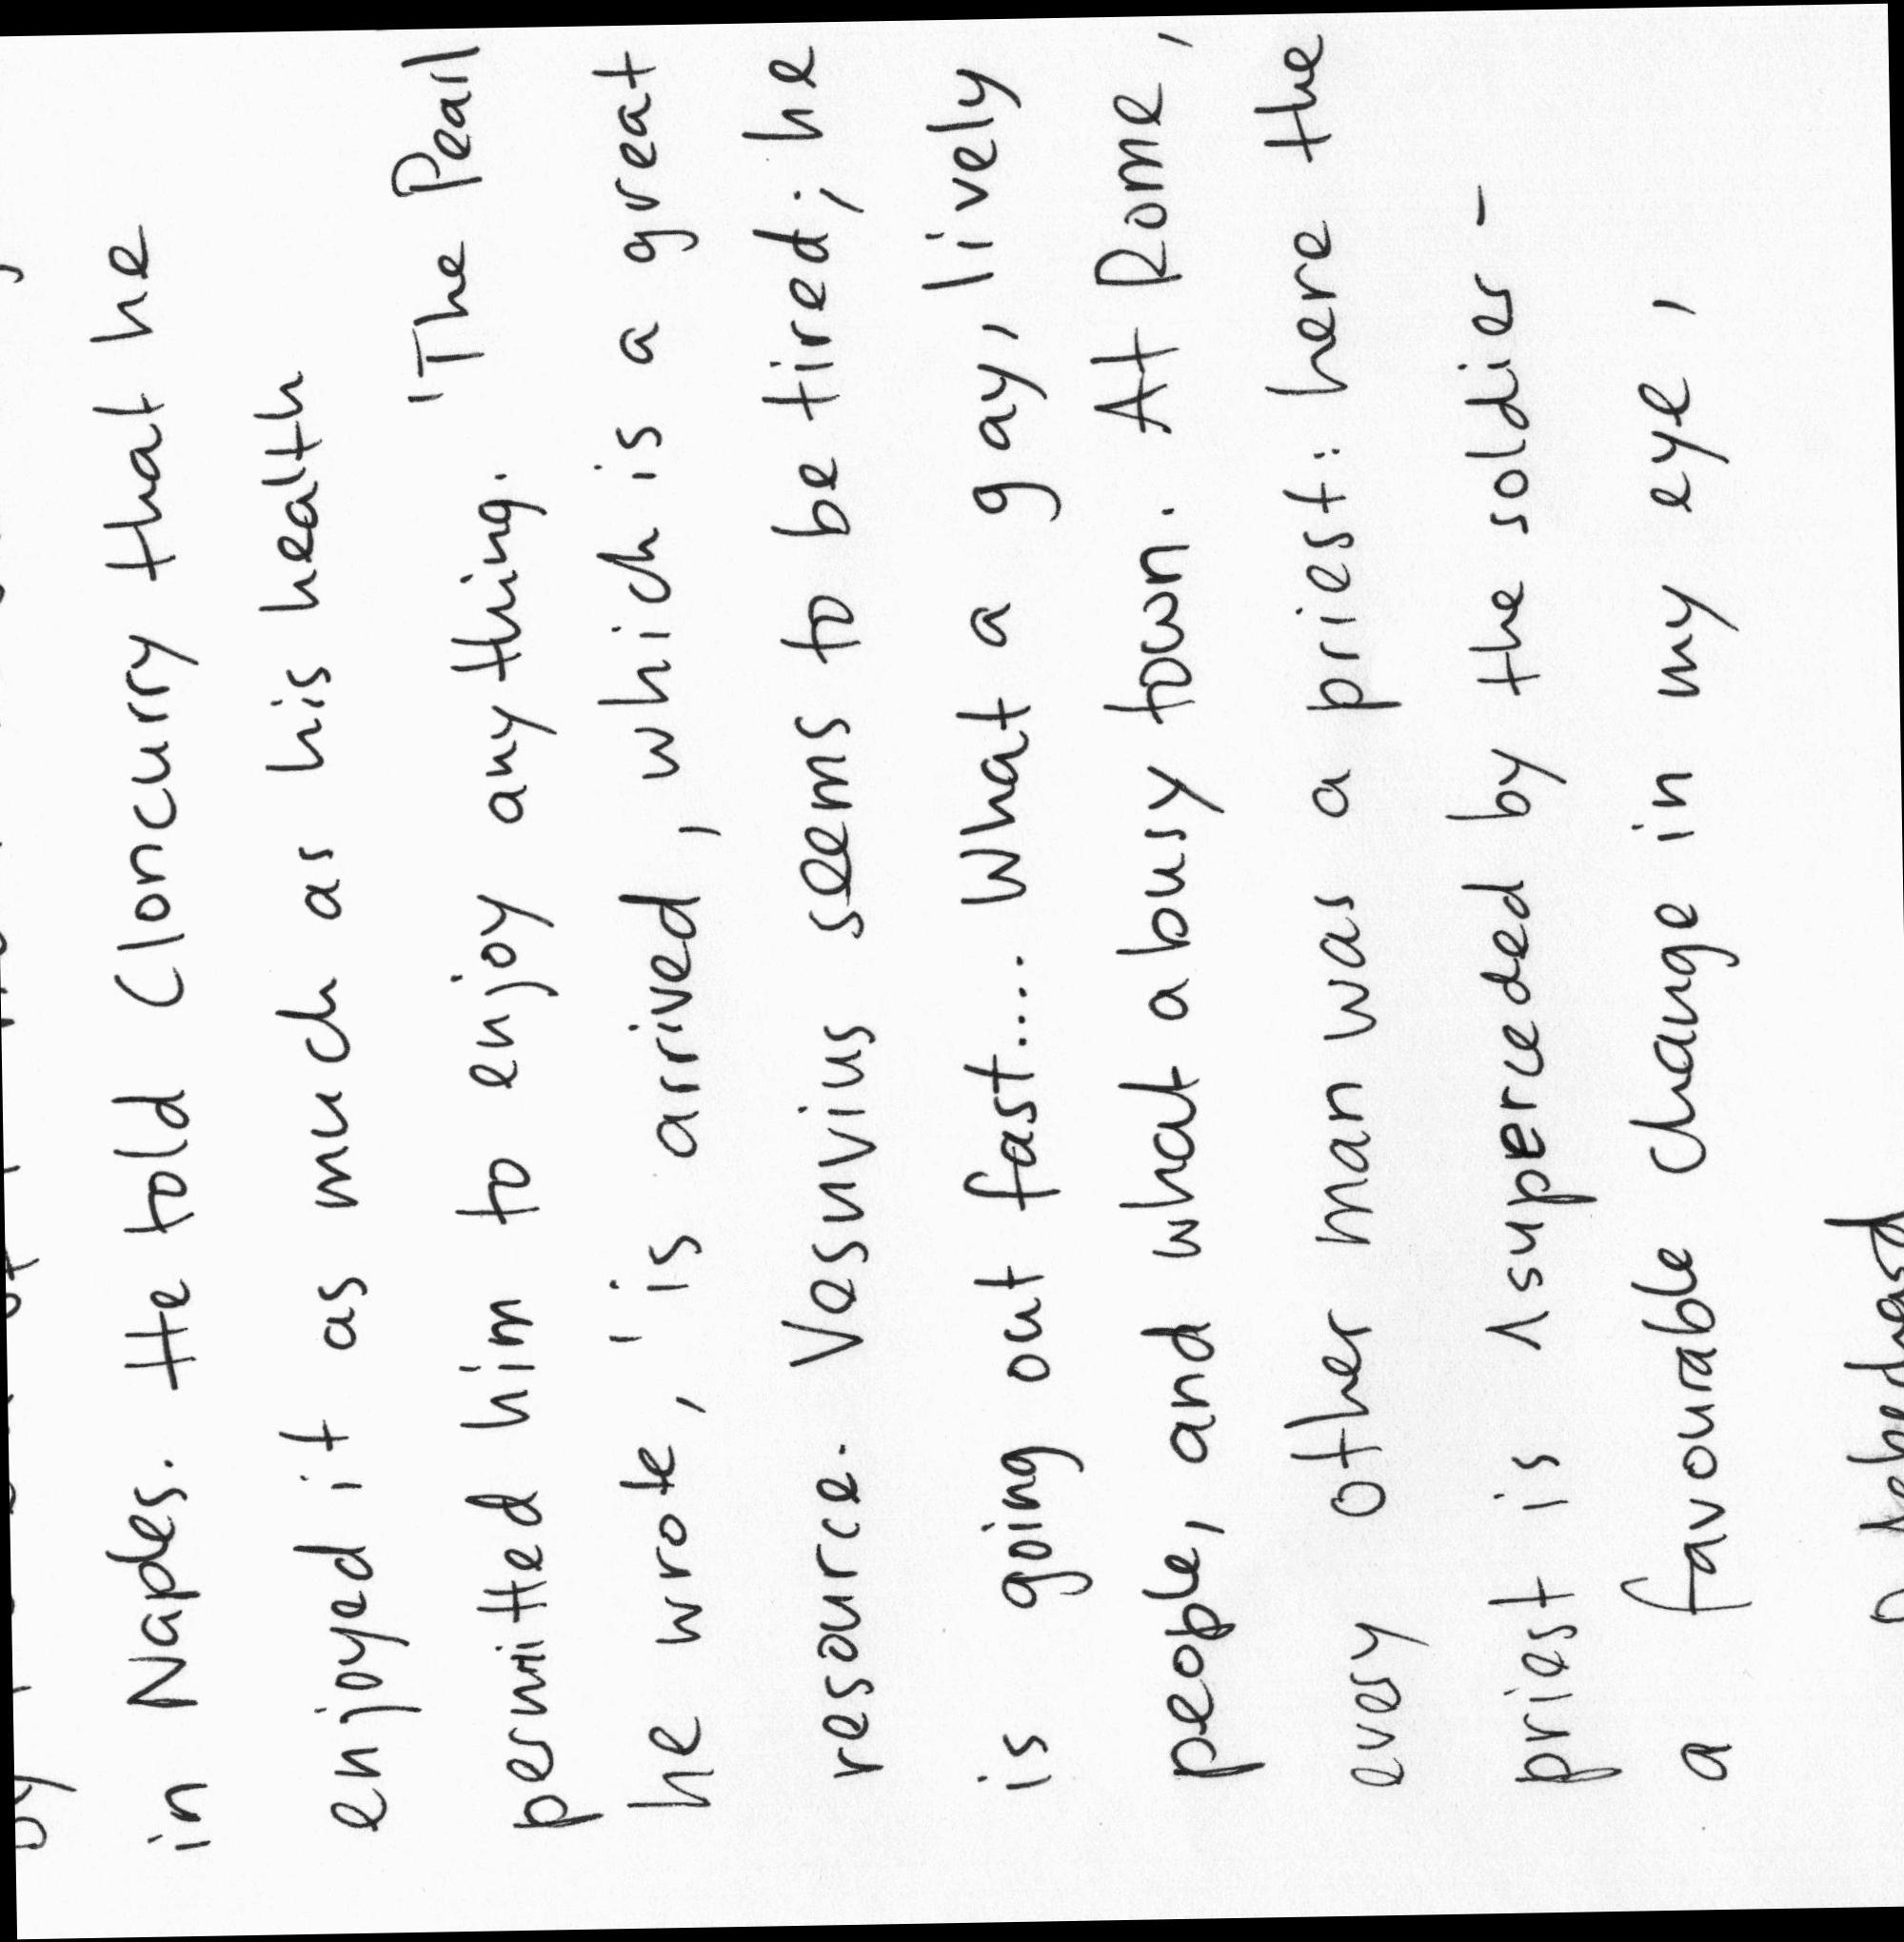 in Naples. He told Cloncurry that he
enjoyed it as much as his health
permitted him to enjoy any thing. 'The Pearl
he wrote, 'is arrived, which is a great
resource. Vesuvius seems to be tired; he
is going out fast.... What a gay, lively
people, and what a busy town. At Rome,
every other man was a priest: here the
priest is 1superceded by the soldier -
a favourable change in my eye,